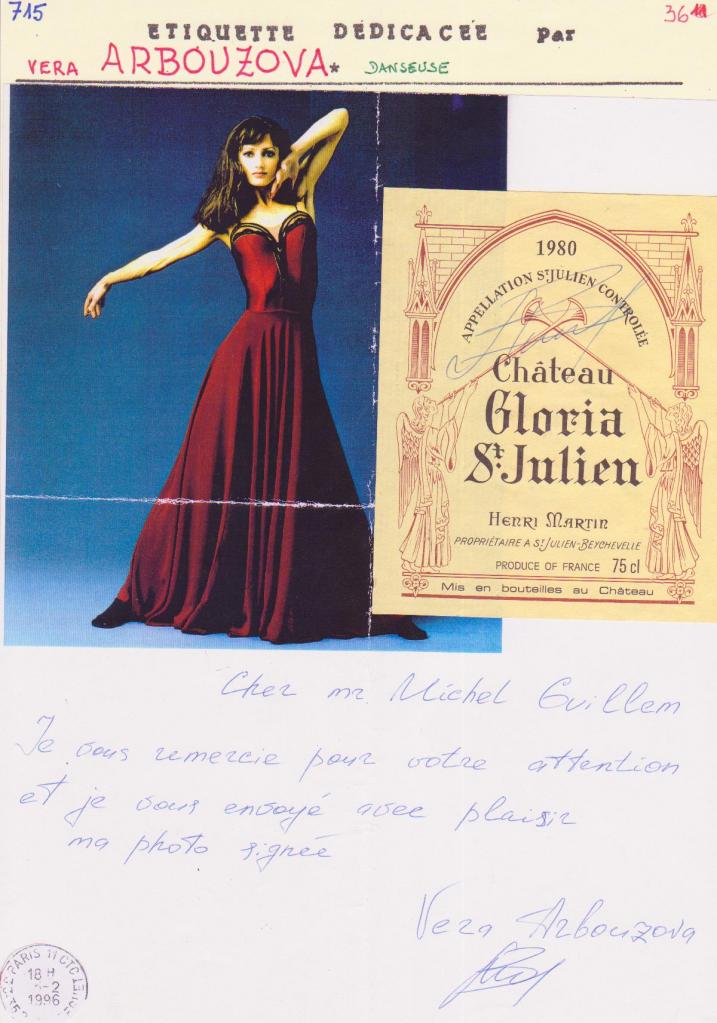 715
36
ETIQUETTE DEDICACEE par
VERA ARBOUZOVA* DANSEUSE
1980
APPELLATION St JULIEN CONTROLÉE
Château
Gloria
St. Julien
HENRI MARTIN
PROPRIÉTAIRE A St JULIEN-BEYCHEVELLE
PRODUCE OF FRANCE 75 cl
Mis en bouteilles au Château
Cher mr Michel Guillem
Je vous remercie pour votre attention
et je vous envoyé avec plaisir
ma photo signée
Vera Arbouzova
PARIS 11
18 H
-2
1996